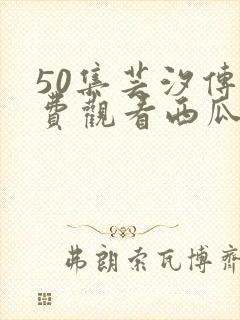 50集芸汐傳
費觀看西瓜
弗朗索瓦博齊